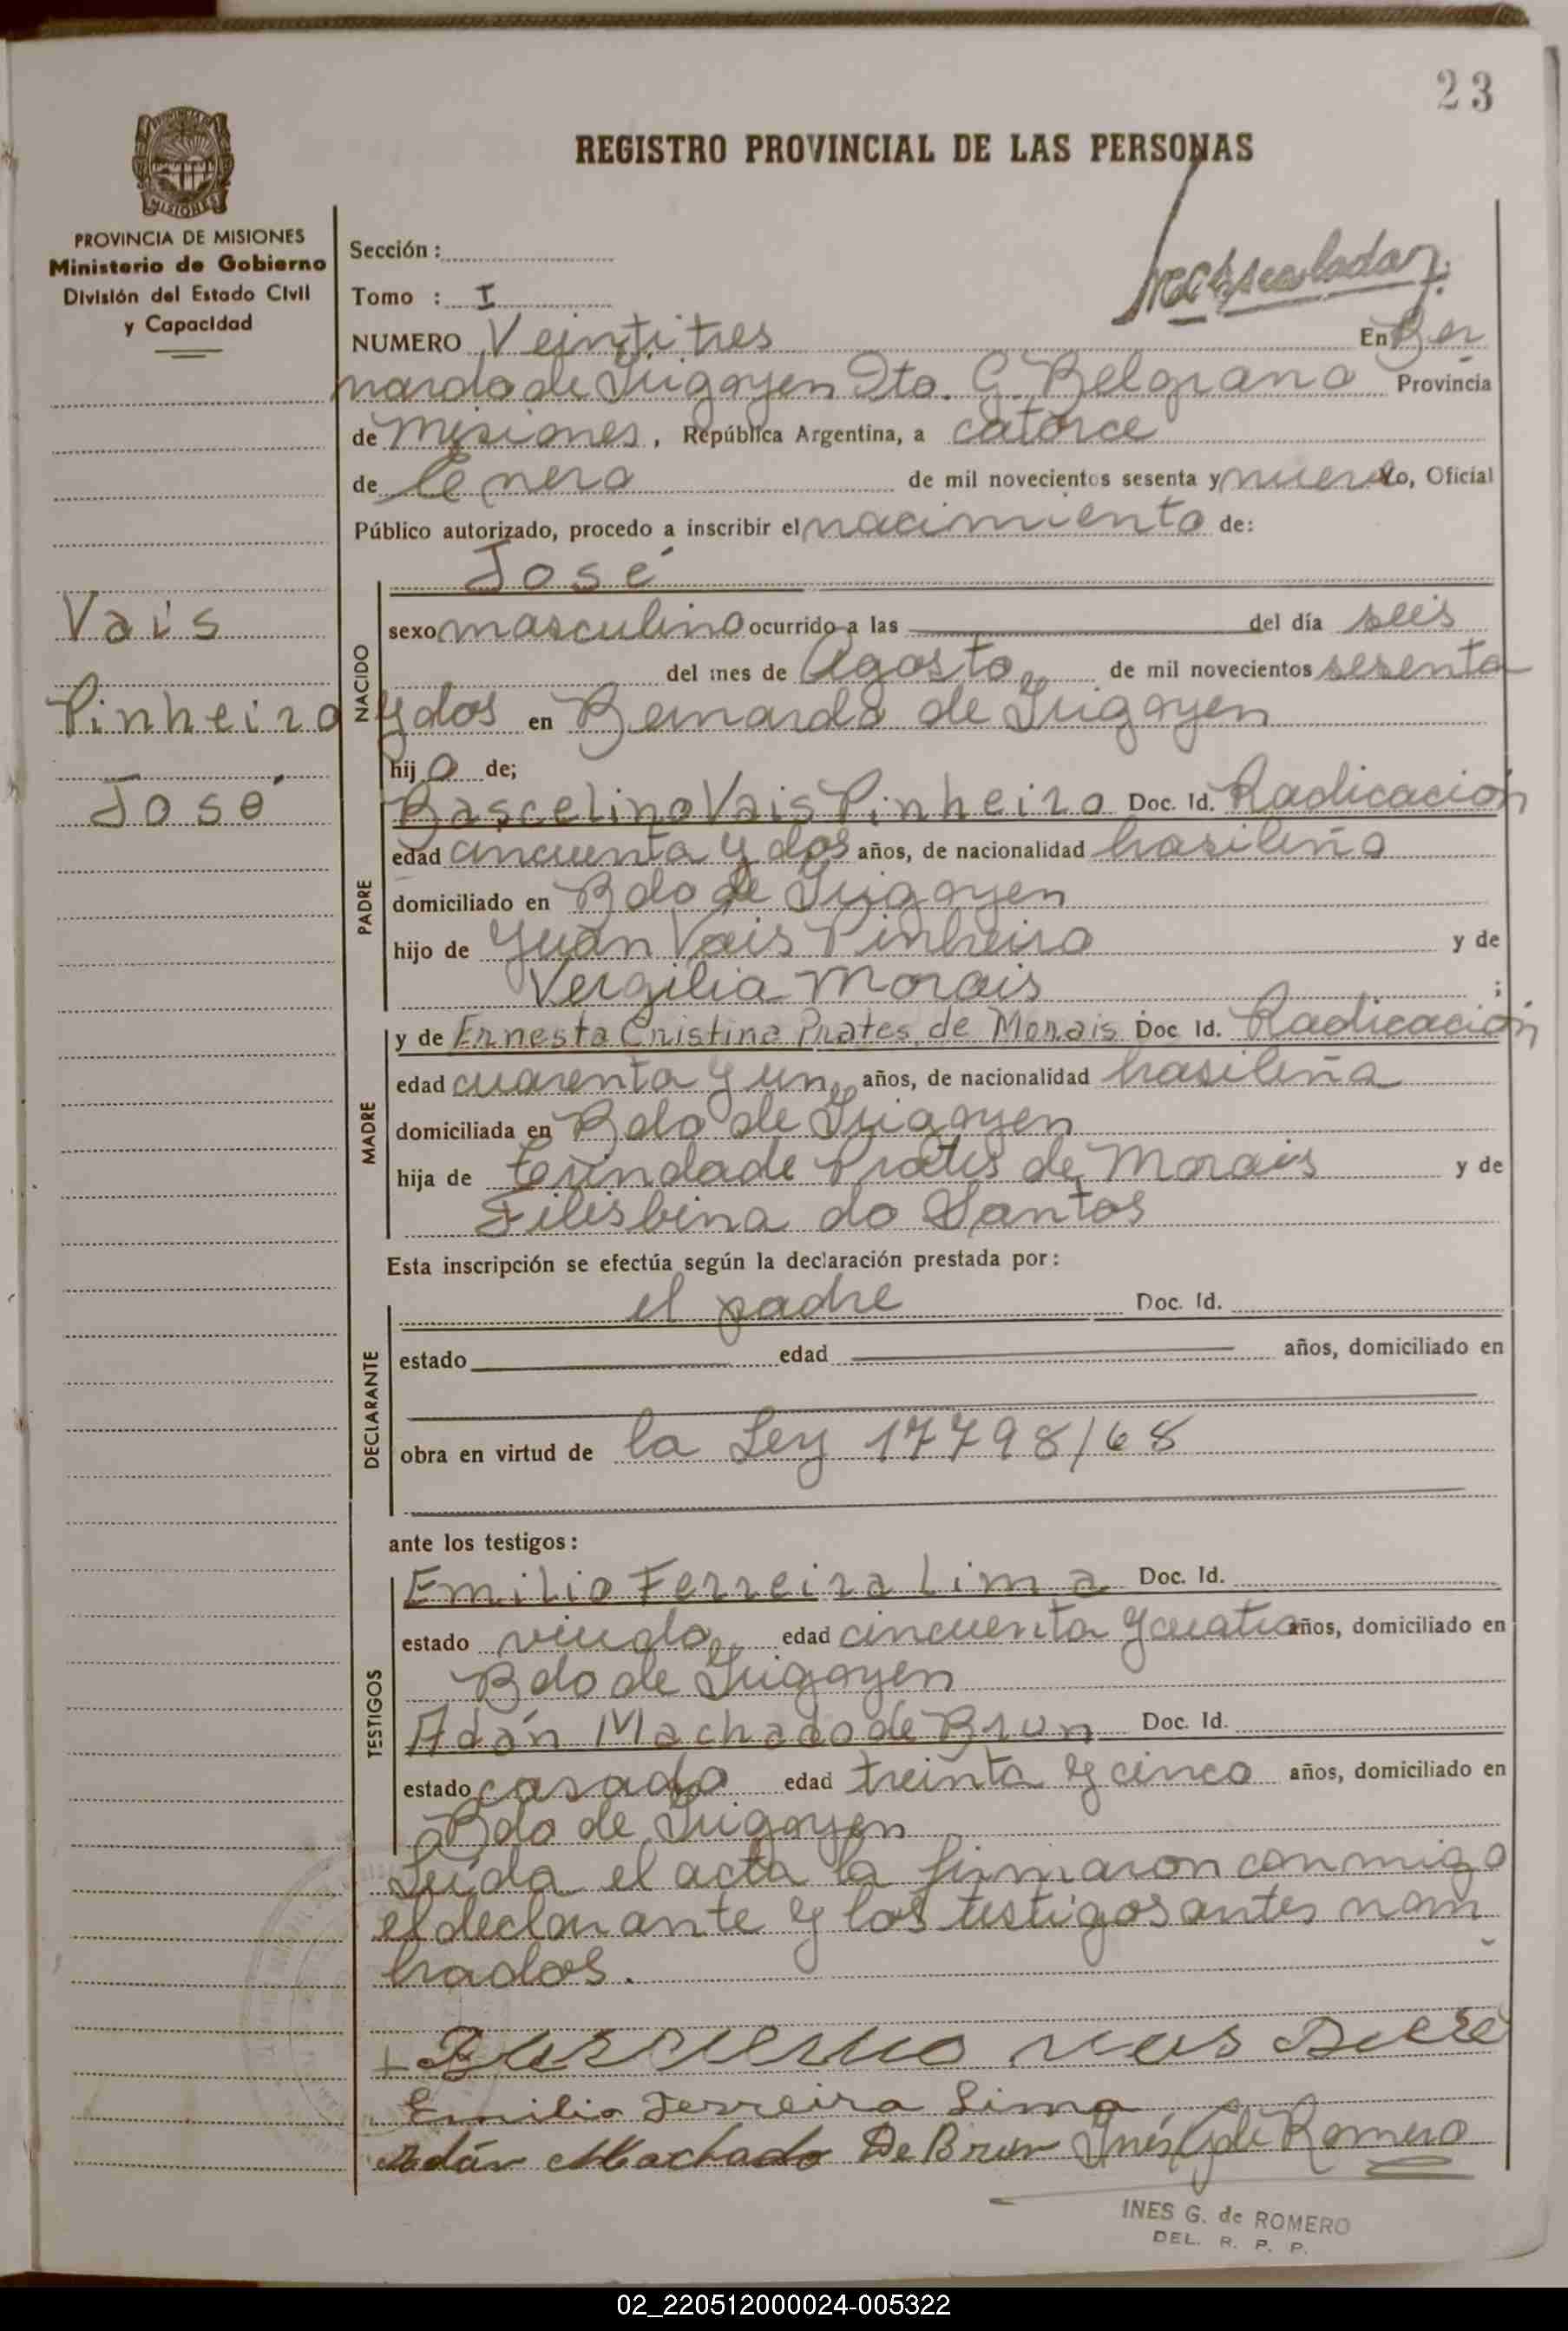 23
REGISTRO PROVINCIAL DE LAS PERSONAS
MISIONES
PROVINCIA DE MISIONES
Ministerio de Gobierno
División del Estado Civil
y Capacidad
Vais
Pinheiro
José
Sección :
Tomo : I
NUMERO Veintitres En Ber
nardo de Irigoyen Dto. G. Belgrano Provincia
de Misiones, República Argentina, a catorce
de Enero de mil novecientos sesenta y nueve Yo, Oficial
Público autorizado, procedo a inscribir el nacimiento de:
José
NACIDO
sexo masculino ocurrido a las del día seis
del mes de Agosto de mil novecientos sesenta
y dos en Bernardo de Irigoyen
hijo de;
PADRE
Bascelino Vais Pinheiro Doc. Id. Radicación
edad cincuenta y dos años, de nacionalidad brasileña
domiciliado en Bdo de Irigoyen
hijo de Juan Vais Pinheiro y de
Vergilia Morais ;
MADRE
y de Ernesta Cristina Prates de Morais Doc Id. Radicación
edad cuarenta y un años, de nacionalidad brasileña
domiciliada en Bdo de Irigoyen
hija de Terindade Prates de Morais y de
Filisbina do Santos
Esta inscripción se efectúa según la declaración prestada por:
DECLARANTE
el padre Doc. Id.
estado edad años, domiciliado en
obra en virtud de la Ley 17798/68
ante los testigos:
TESTIGOS
Emilio Ferreira Lima Doc. Id.
estado viudo edad cincuenta y cuatro años, domiciliado en
Bdo de Irigoyen
Adán Machado de Brun Doc. Id.
estado casado edad treinta y cinco años, domiciliado en
Bdo de Irigoyen
Leída el acta la firmaron conmigo
el declarante y los testigos antes nom
brados.
Emilio Ferreira Lima
Adán Machado De Brun Inés G de Romero
INES G. de ROMERO
DEL. R. P. P.
02_220512000024-005322